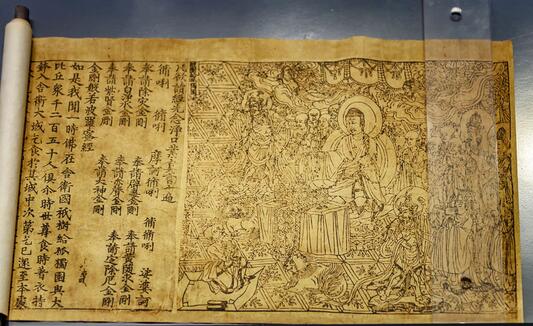 凡欲讀經先念淨口業真言一遍
脩唎 脩唎 摩訶脩唎 脩脩唎 娑婆訶
奉請除灾金剛 奉請辟毒金剛 奉請黃随求金剛
奉請白净水金剛 奉請赤聲金剛 奉請定除厄金剛
奉請紫賢金剛 奉請大神金剛
金剛般若波羅蜜經
如是我聞一時佛在舍衛國祇樹給孤獨園與大
比丘衆千二百五十人俱尒時世尊食時着衣持
鉢入舍衛大城乞食扵其城中次第乞已還至本處